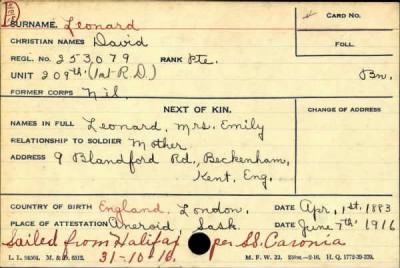 SURNAME. Leonard
CARD NO.
CHRISTIAN NAMES David
FOLL.
REGL. NO. 253079 RANK Pte.
UNIT 209th (1st R.D.) Bn.
FORMER CORPS Nil
NEXT OF KIN.
CHANGE OF ADDRESS
NAMES IN FULL Leonard, Mrs. Emily
RELATIONSHIP TO SOLDIER Mother
ADDRESS 9 Blandford Rd., Beckenham,
Kent, Eng.
COUNTRY OF BIRTH England, London. DATE Apr. 1st. 1883
PLACE OF ATTESTATION Aneroid, Sask. DATE June 7th 1916
Sailed from Halifax per SS. Caronia
31-10-16.
M. F. W. 22. H. Q. 1772-39-239.